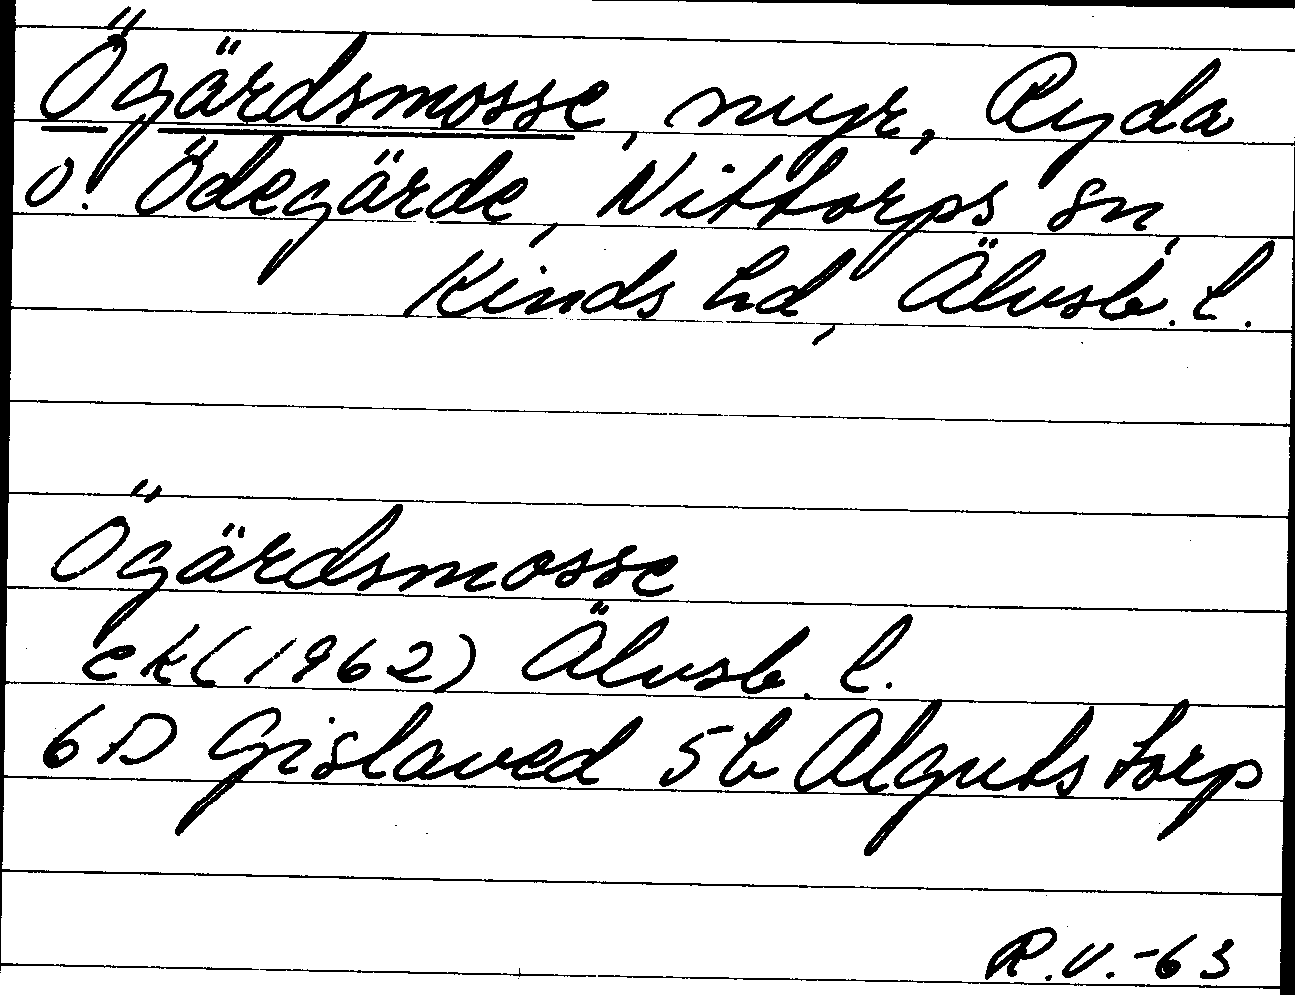 Ögärdsmosse, myr, Ryda
o. Ödegärde, Nittorps sn,
Kinds hd, Älvsb. l.
Ögärdsmosse
ek (1962) Älvsb. l.
6D Gislaved 5b Algutstorp
R.V.-63